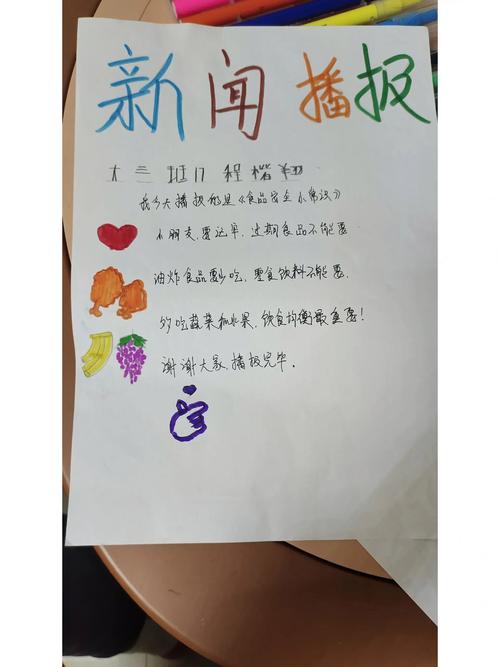 新闻播报
大三班 程楷翔
我今天播报的是《食品安全小常识》
小朋友要记牢,过期食品不能要
油炸食品要少吃,零食饮料不能要.
多吃蔬菜和水果,饮食均衡最重要!
谢谢大家,播报完毕.